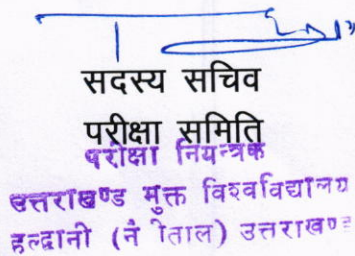 सदस्य सचिव
परीक्षा समिति
परीक्षा नियन्त्रक
उत्तराखण्ड मुक्त विश्वविद्यालय
हल्द्वानी (नैनीताल) उत्तराखण्ड